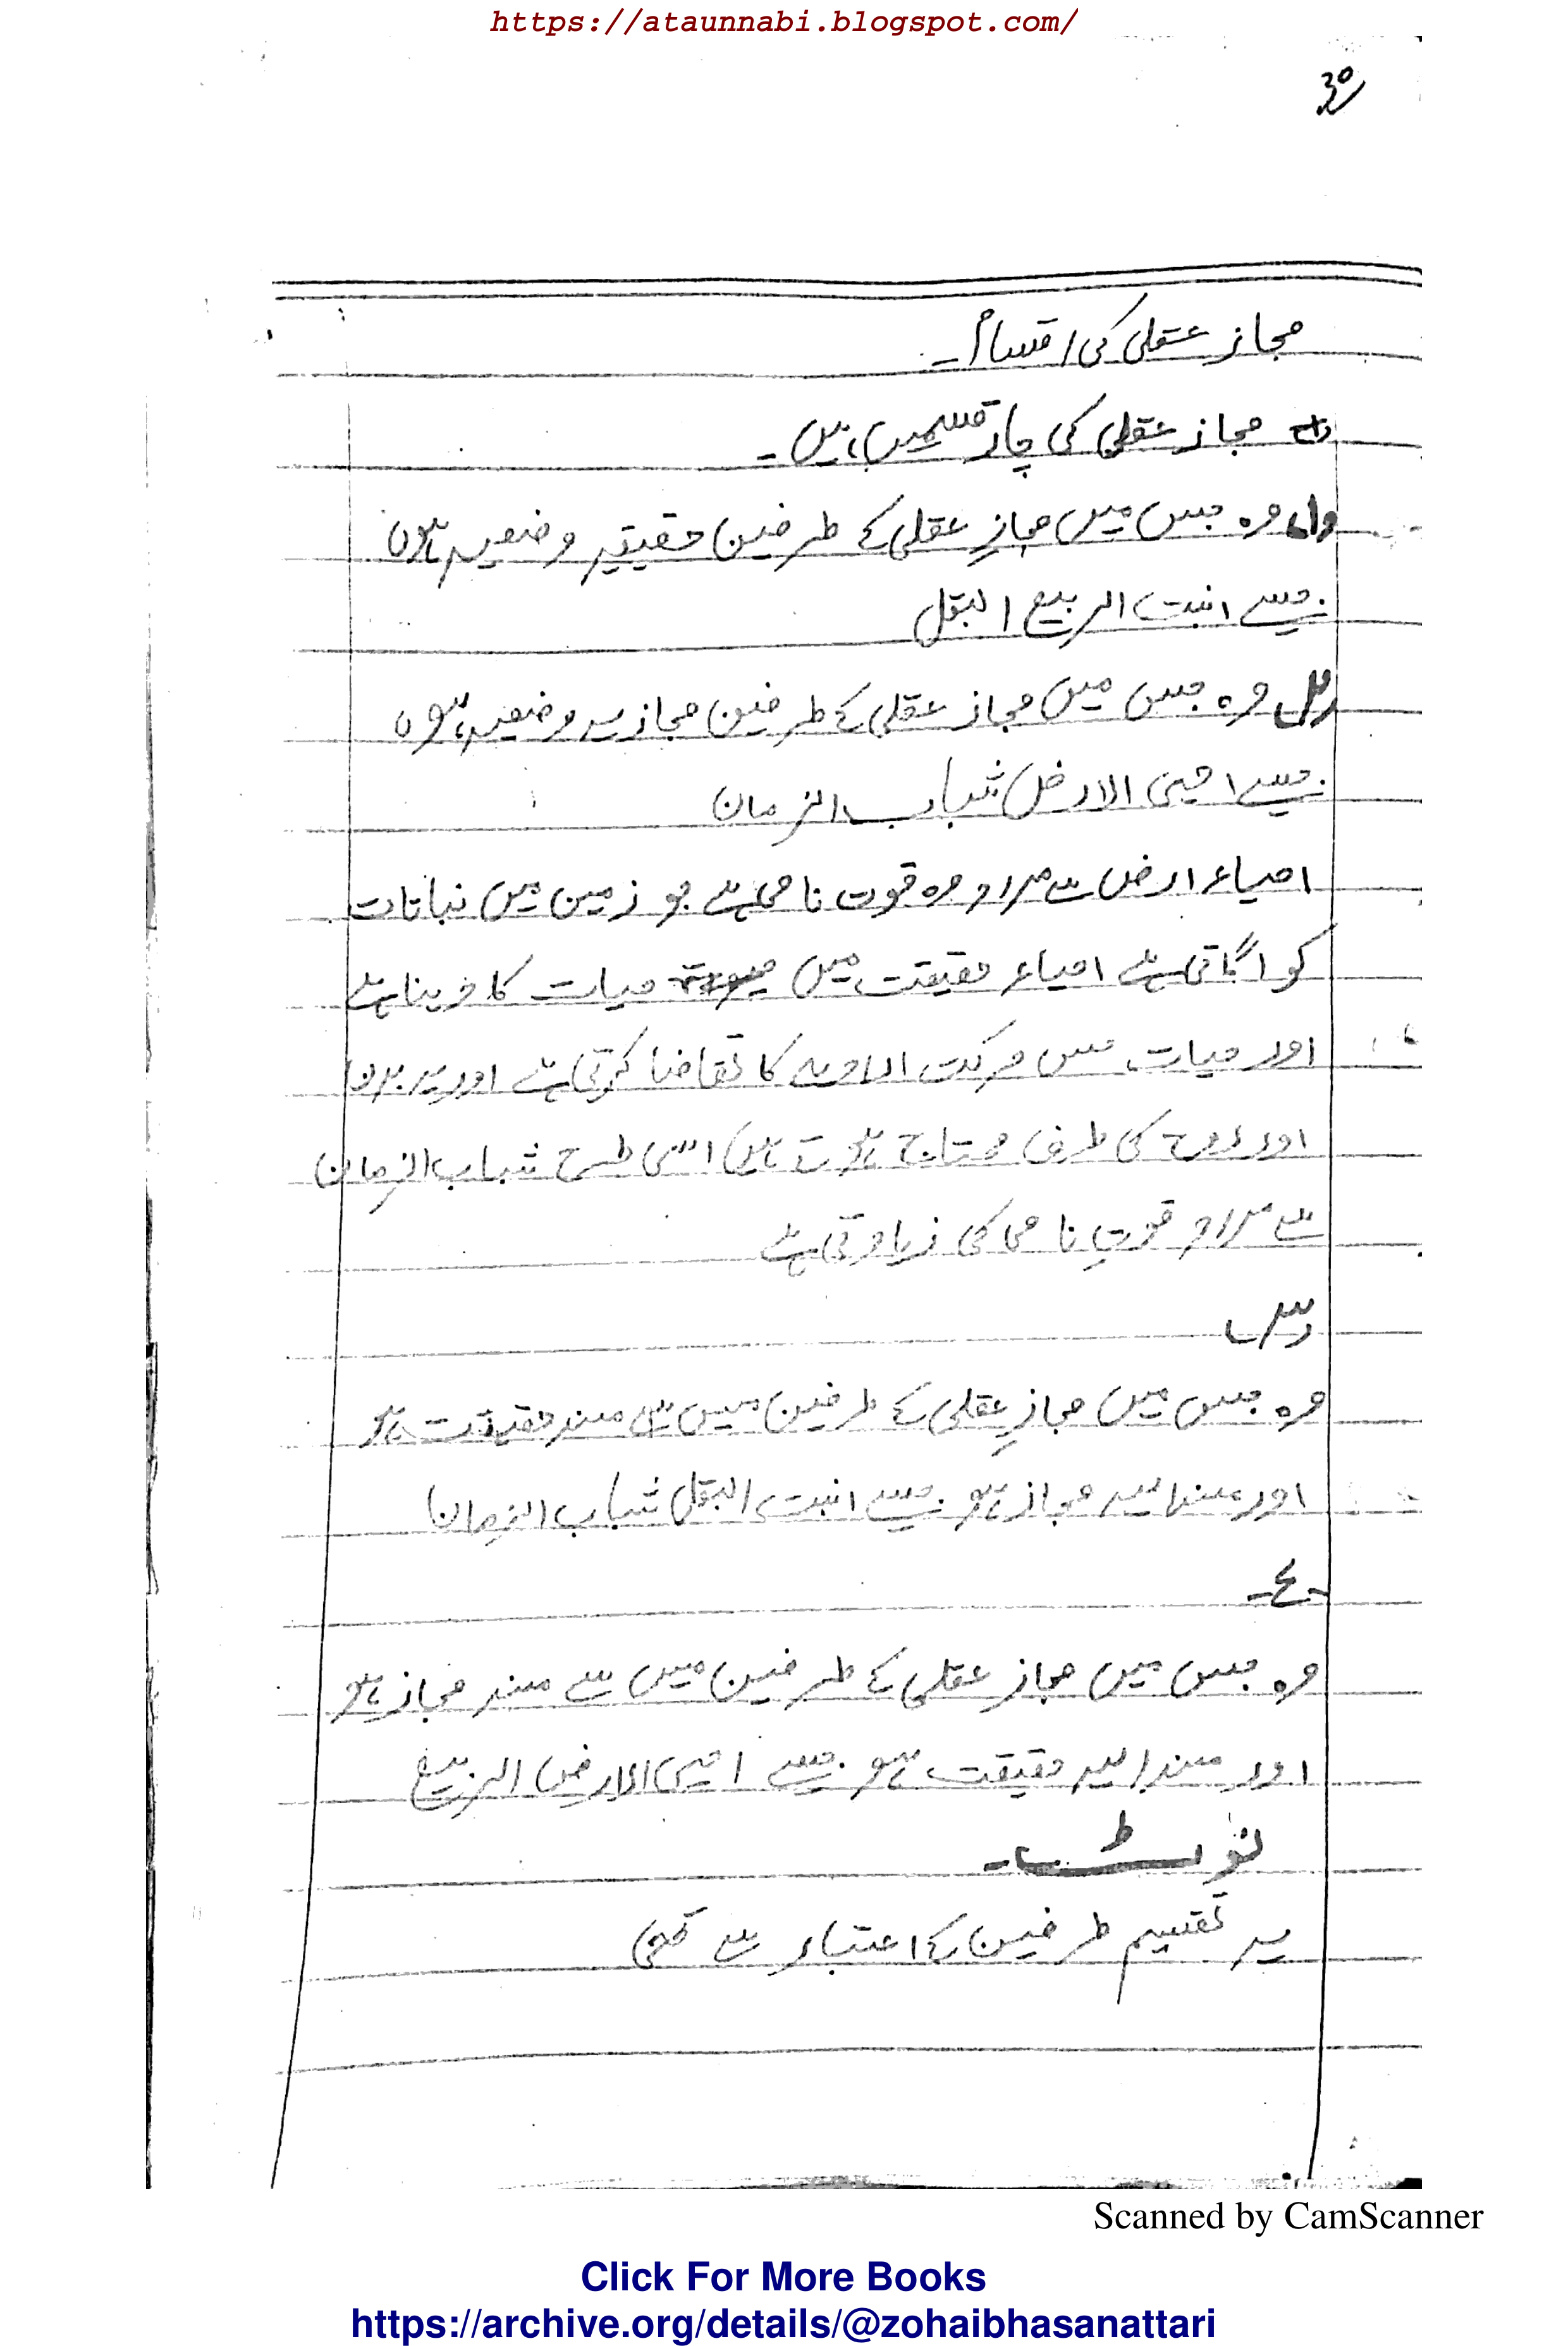 https://ataunnabi.blogspot.com/
30
مجاز عقلی کی اقسام۔
مجاز عقلی کی چار قسمیں ہیں۔
(۱) وہ جس میں مجازِ عقلی کے طرفین حقیقیہ وضعیہ ہوں
جیسے انبت الربیع البقل
(۲) وہ جس میں مجاز عقلی کے طرفین مجازیہ وضعیہ ہوں
جیسے احیی الارض شباب الزمان
احیاء ارض سے مراد وہ قوت نامی ہے جو زمین میں نباتات
کو اگاتی ہے احیاء حقیقت میں حیات کا دینا ہے
اور حیات حس حرکت ارادیہ کا تقاضا کرتی ہے اور یہ بدن
اور روح کی طرف محتاج ہوتے ہیں اسی طرح شباب الزمان
سے مراد قوتِ نامی کی زیادتی ہے
(۳)
وہ جس میں مجازِ عقلی کے طرفین میں سے مسند حقیقت ہو
اور مسند الیہ مجاز ہو جیسے انبت البقل شباب الزمان
-٤-
وہ جس میں مجاز عقلی کے طرفین میں سے مسند مجاز ہو
اور مسند الیہ حقیقت ہو جیسے احیی الارض الربیع
نوٹ۔
یہ تقسیم طرفین کے اعتبار سے تھی
Scanned by CamScanner
Click For More Books
https://archive.org/details/@zohaibhasanattari